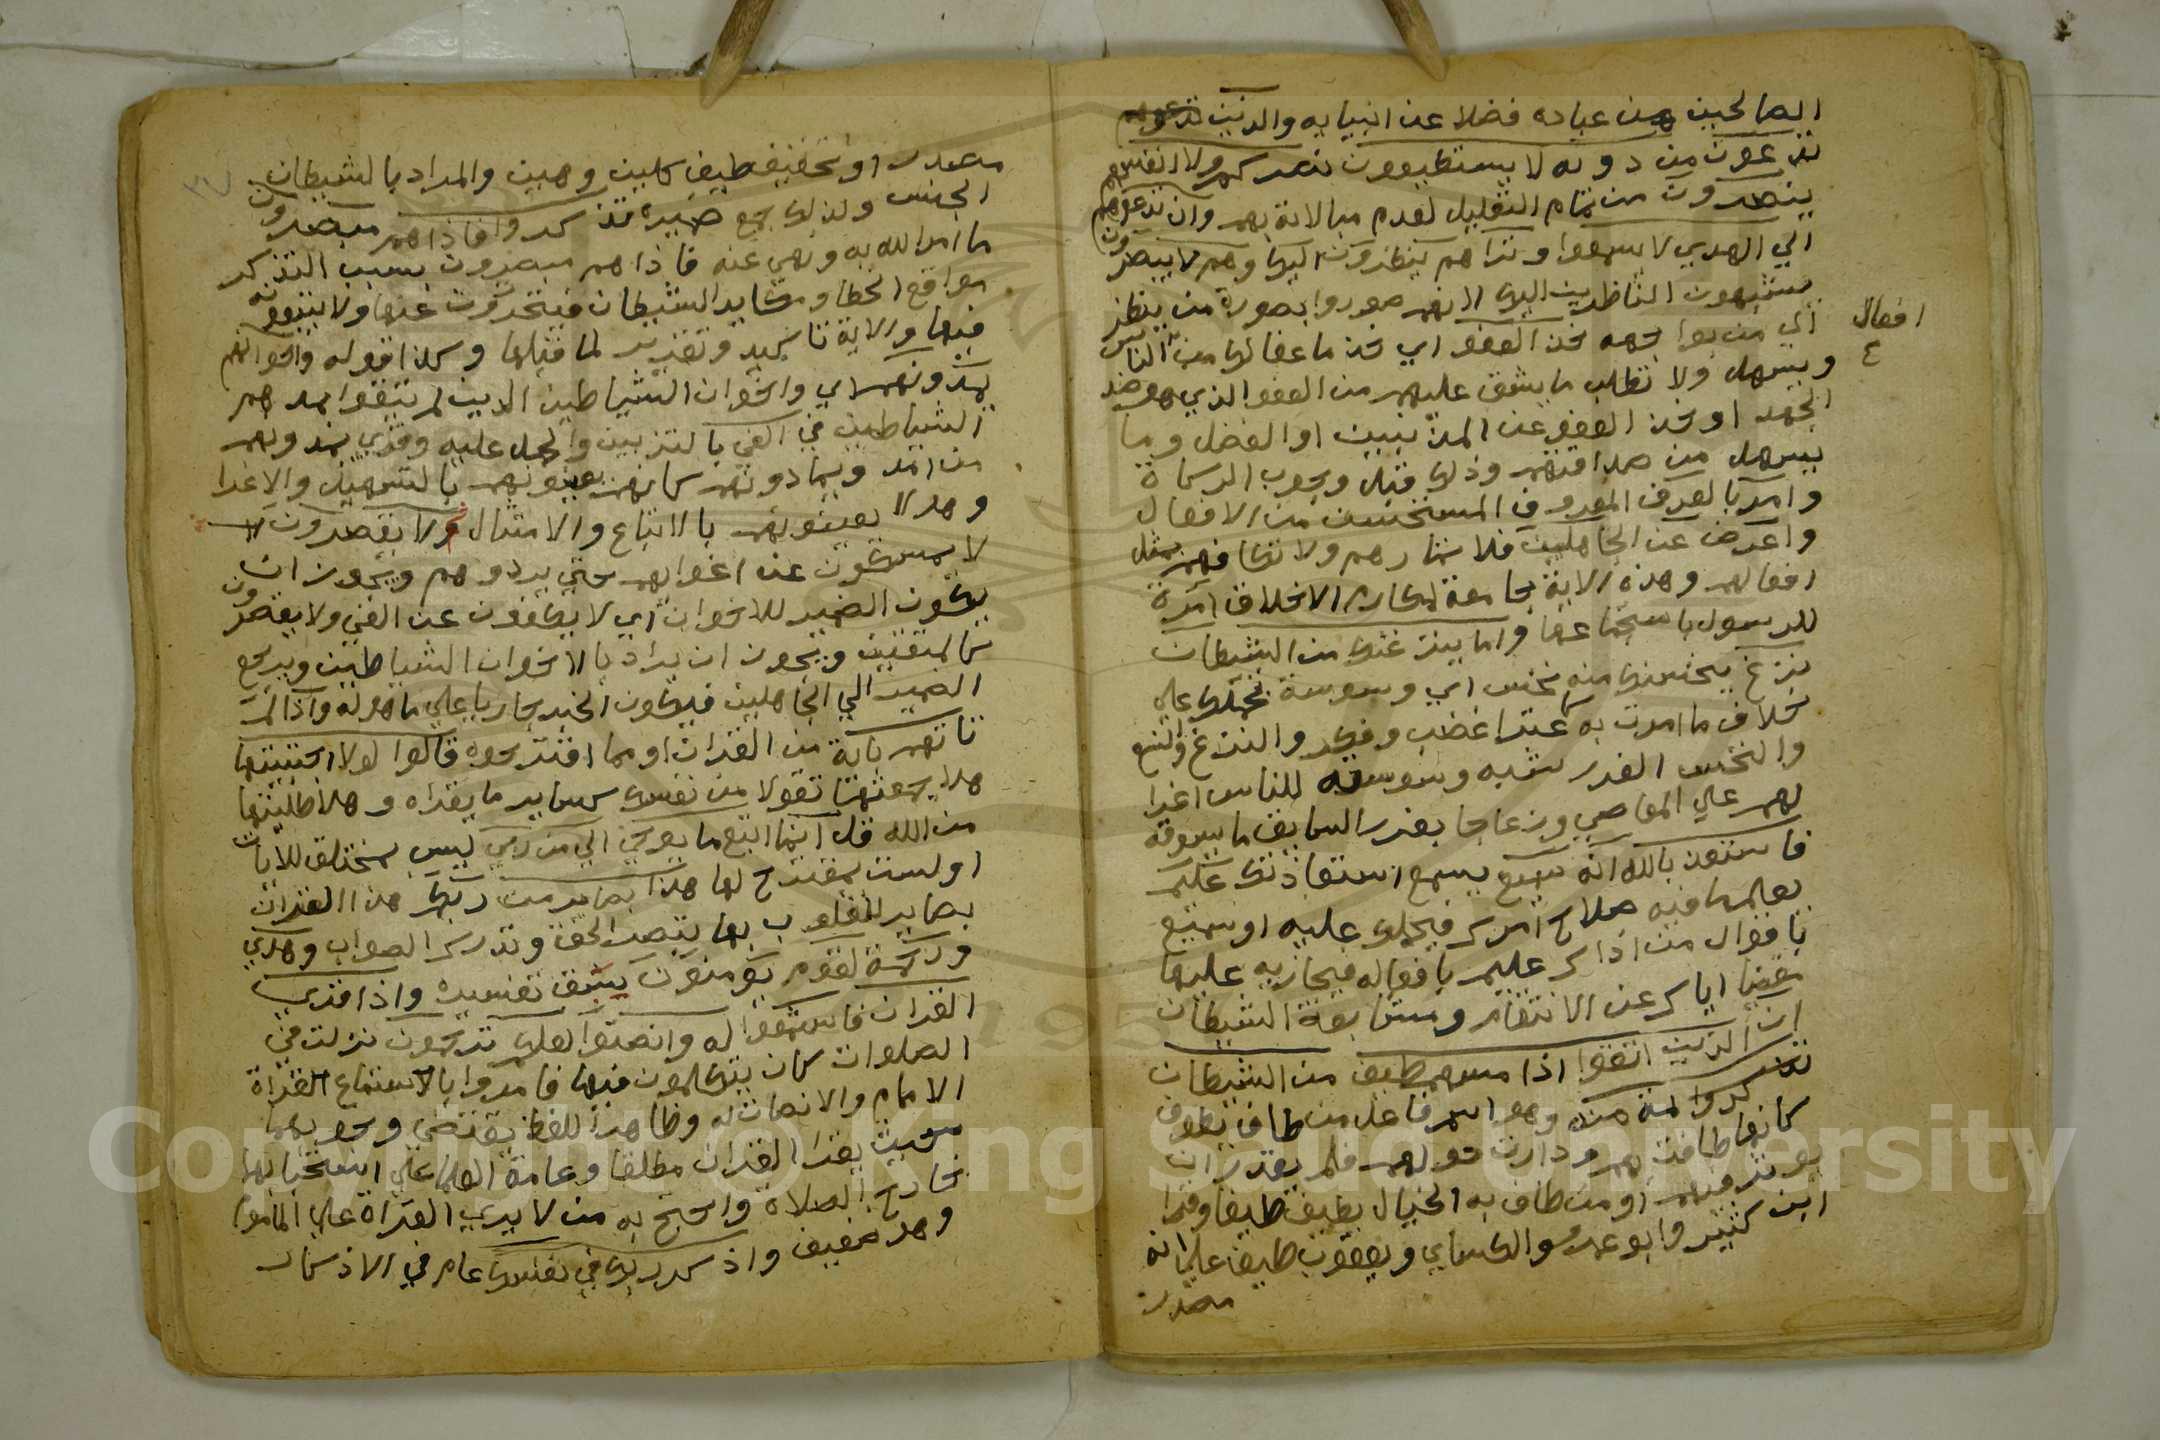 الصالحين من عباده فضلا عن انبيايه والذين تدعوهم
تدعون من دونه لا يستطيعون نصركم ولا انفسهم
ينصرون من تمام التعليل لعدم مبالاته بهم وان تدعوهم
الي الهدي لا يسمعوا وتراهم ينظرون اليك وهم لا يبصرون
يشبهون الناظرين اليك لانهم صوروا بصورة من ينظر
الي من يواجهه خذ العفو اي خذ ما عفا لك من افعال الناس
وتسهل ولا تطلب ما يشق عليهم من العفو الذي هو ضد
الجهد او خذ العفو عن المذنبين او الفضل وما
يسهل من صدقاتهم وذلك قبل وجوب الزكاة
وامر بالعرف المعروف المستحسن من الافعال
واعرض عن الجاهلين فلا تمارهم ولا تكافهم بمثل
افعالهم وهذه الاية جامعة لمكارم الاخلاق امرة
للرسول باستجماعها واما ينزغنك من الشيطان
نزغ ينخسنك منه نخس اي وسوسة تحملك علي
خلاف ما امرت به كاعترا غضب وفكر والنزغ والنسغ
والنخس الغرز شبه وسوسته للناس اغرا
لهم علي المعاصي وزعاجا بغرز السايق ما يسوقه
فاستعذ بالله انه سميع يسمع استعاذتك عليم
يعلم ما فيه صلاح امرك فيحملك عليه او سميع
باقوال من اذاك عليم بافعاله فيجازيه عليها
مغنيا اياك عن الانتقام ومتابعة الشيطان
ان الذين اتقوا اذا مسهم طيف من الشيطان
تذكروا لمة منه وهو اسم فاعل من طاف يطوف
كانها طافت بهم ودارت حولهم فلم يقدر ان
يوثر فيهم او من طاف به الخيال يطيف طيفا وقرا
ابن كثير وابو عمرو والكساي ويعقوب طيف علي انه
مصدر
افعال
ع
مصدر او تخفيف طيف كلين وهين والمراد بالشيطان
الجنس ولذلك جمع ضميره تذكروا فاذا هم مبصرون
ما امر الله به ونهي عنه فاذا هم مبصرون بسبب التذكر
مواقع الخطا ومكايد الشيطان فيتحرزون عنها ولا يتبعونه
فيها والاية تاكيد وتقرير لما قبلها وكذا قوله واخوانهم
يمدونهم اي واخوان الشياطين الذين لم يتقوا يمدهم
الشياطين في الغي بالتزيين والحمل عليه وقري يمدونهم
من امد ويمادونهم كانهم يعينونهم بالتسهيل والاغرا
وهولا يعينونهم بالاتباع والامتثال ثم لا يقصرون
لا يمسكون عن اغوايهم حتي يردوهم ويجوز ان
يكون الضمير للاخوان اي لا يكفون عن الغي ولا يقصرون
كالمتقين ويجوز ان يراد بالاخوان الشياطين ويرجع
الضمير الي الجاهلين فيكون الخبر جاريا علي ما هو له واذا لم
تاتهم باية من القران او مما اقترحوه قالوا لولا اجتبيتها
هلا جمعتها تقولا من نفسك كساير ما يقراه وهلا طلبتها
من الله قل انما اتبع ما يوحي الي من ربي لست بمختلق للايات
او لست بمقترح لها هذا بصاير من ربكم هذا القران
بصاير للقلوب بها يبصر الحق وتدرك الصواب وهدي
ورحمة لقوم يومنون سبق تفسيره واذا قري
القران فاستمعوا له وانصتوا لعلكم ترحمون نزلت في
الصلوات كان يتكلمون فيها فامروا بالاستماع لقراة
الامام والانصات له وظاهر اللفظ يقتضي وجوبهما
حيث يقرا القران مطلقا وعامة العلما علي استحبابهما
خارج الصلاة واحتج به من لا يري القراة علي الماموم
وهو ضعيف واذكر ربك في نفسك عام في الاذكار
Copyright © King Saud University
195